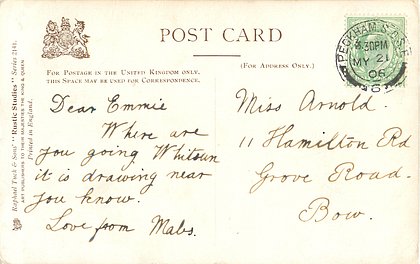 POST CARD
FOR POSTAGE IN THE UNITED KINGDOM ONLY,
THIS SPACE MAY BE USED FOR CORRESPONDENCE.
(FOR ADDRESS ONLY.)
PECKHAM S.O.S.E
8.30PM
MY 21
06
6
Raphael Tuck & Sons' "Rustic Studies" Series 2141.
ART PUBLISHERS TO THEIR MAJESTIES THE KING & QUEEN.
Printed in England.
Dear Emmie
Where are
you going Whitsun
it is drawing near
you know.
Love from Mabs.
Miss Arnold.
11 Hamilton Rd
Grove Road.
Bow.